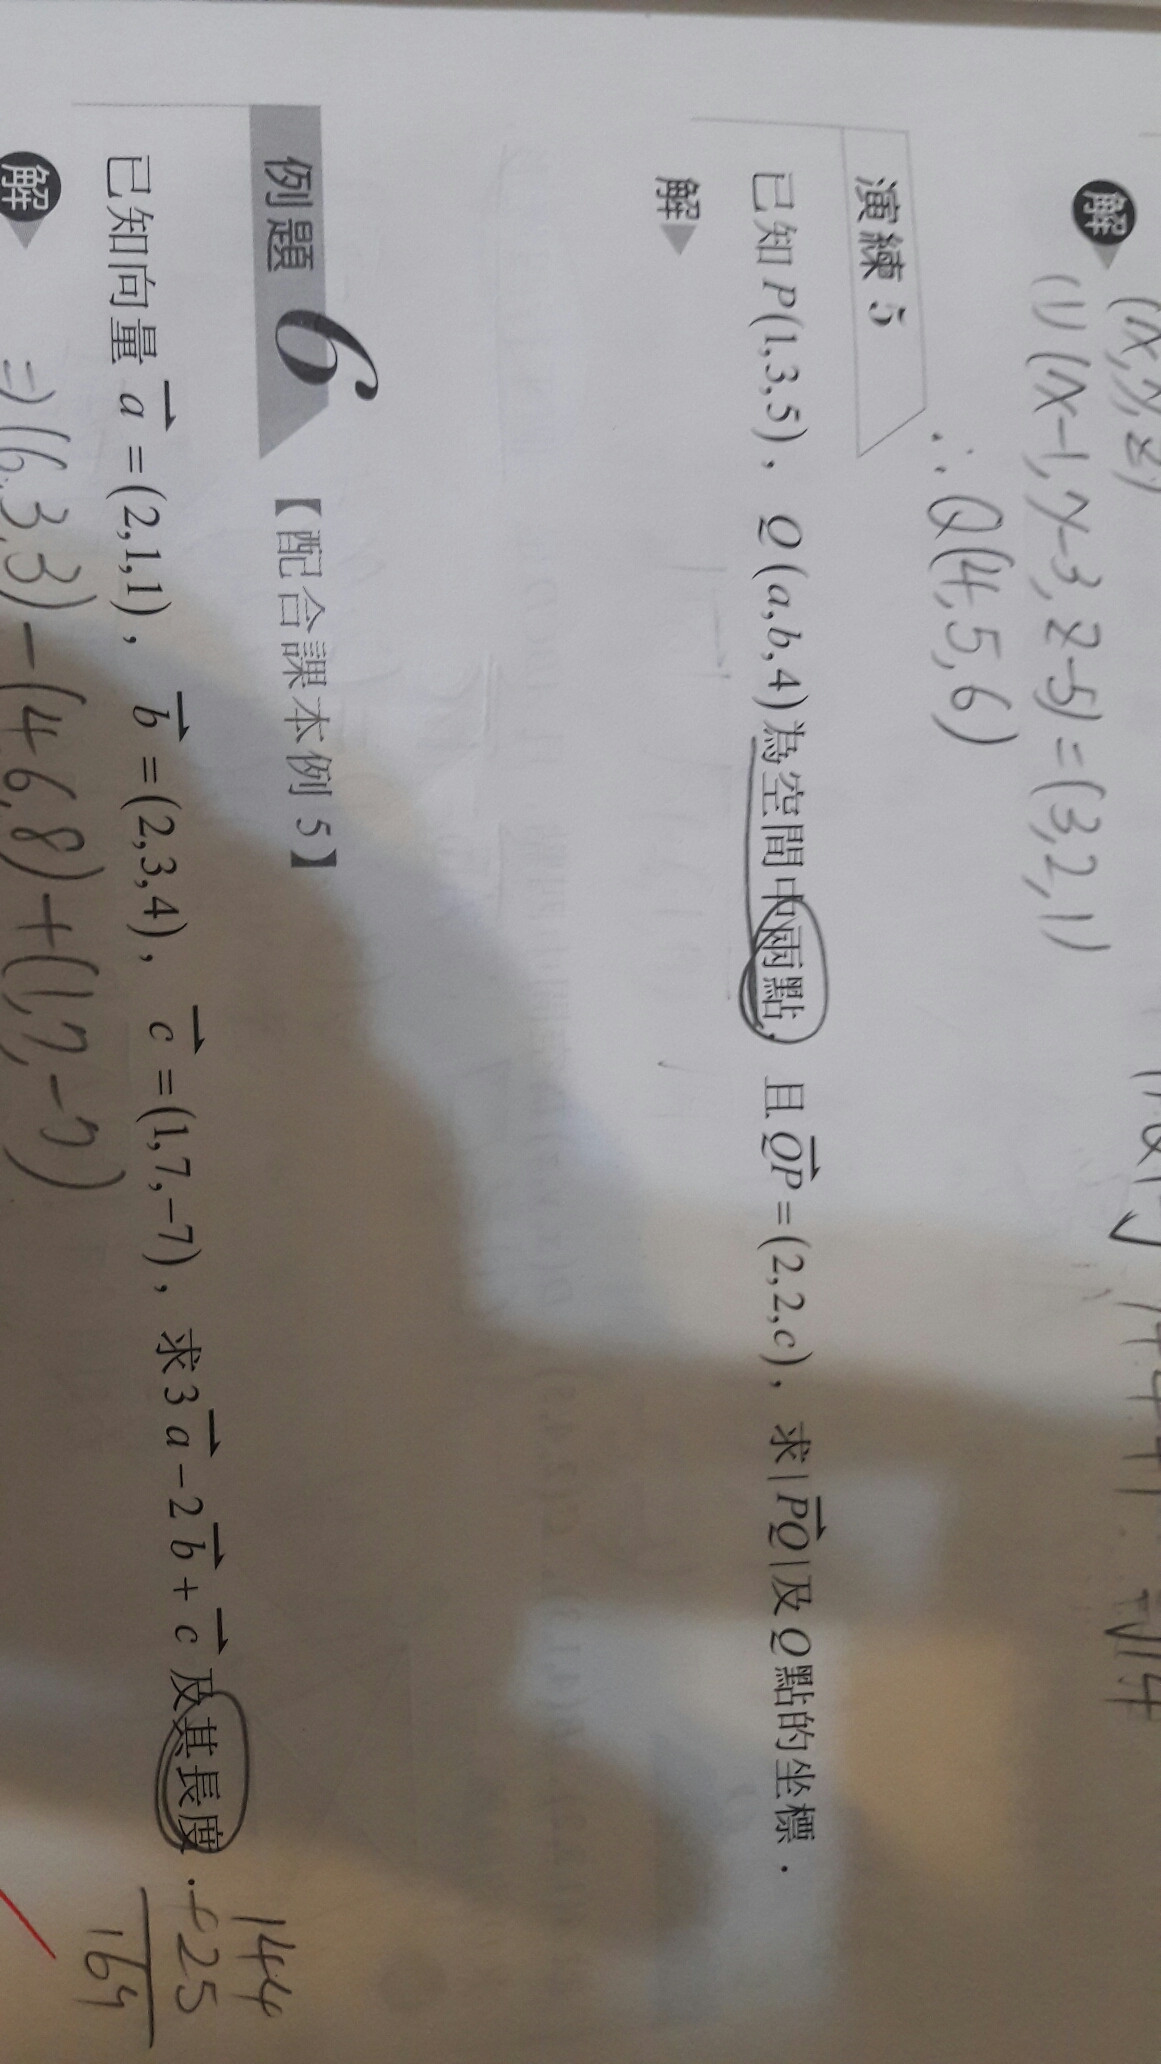 (x,y,z)
解 (1) (x-1,y-3,z-5)=(3,2,1)
∴Q(4,5,6)
√14
演練 5
已知P(1,3,5)，Q(a,b,4)為空間中兩點，且QP=(2,2,c)，求|PQ|及Q點的坐標．
解
例題 6 【配合課本例 5】
已知向量a=(2,1,1)，b=(2,3,4)，c=(1,7,-7)，求3a-2b+c及其長度．
144
+25
169
解 ⇒(6,3,3)-(4,6,8)+(1,7,-7)